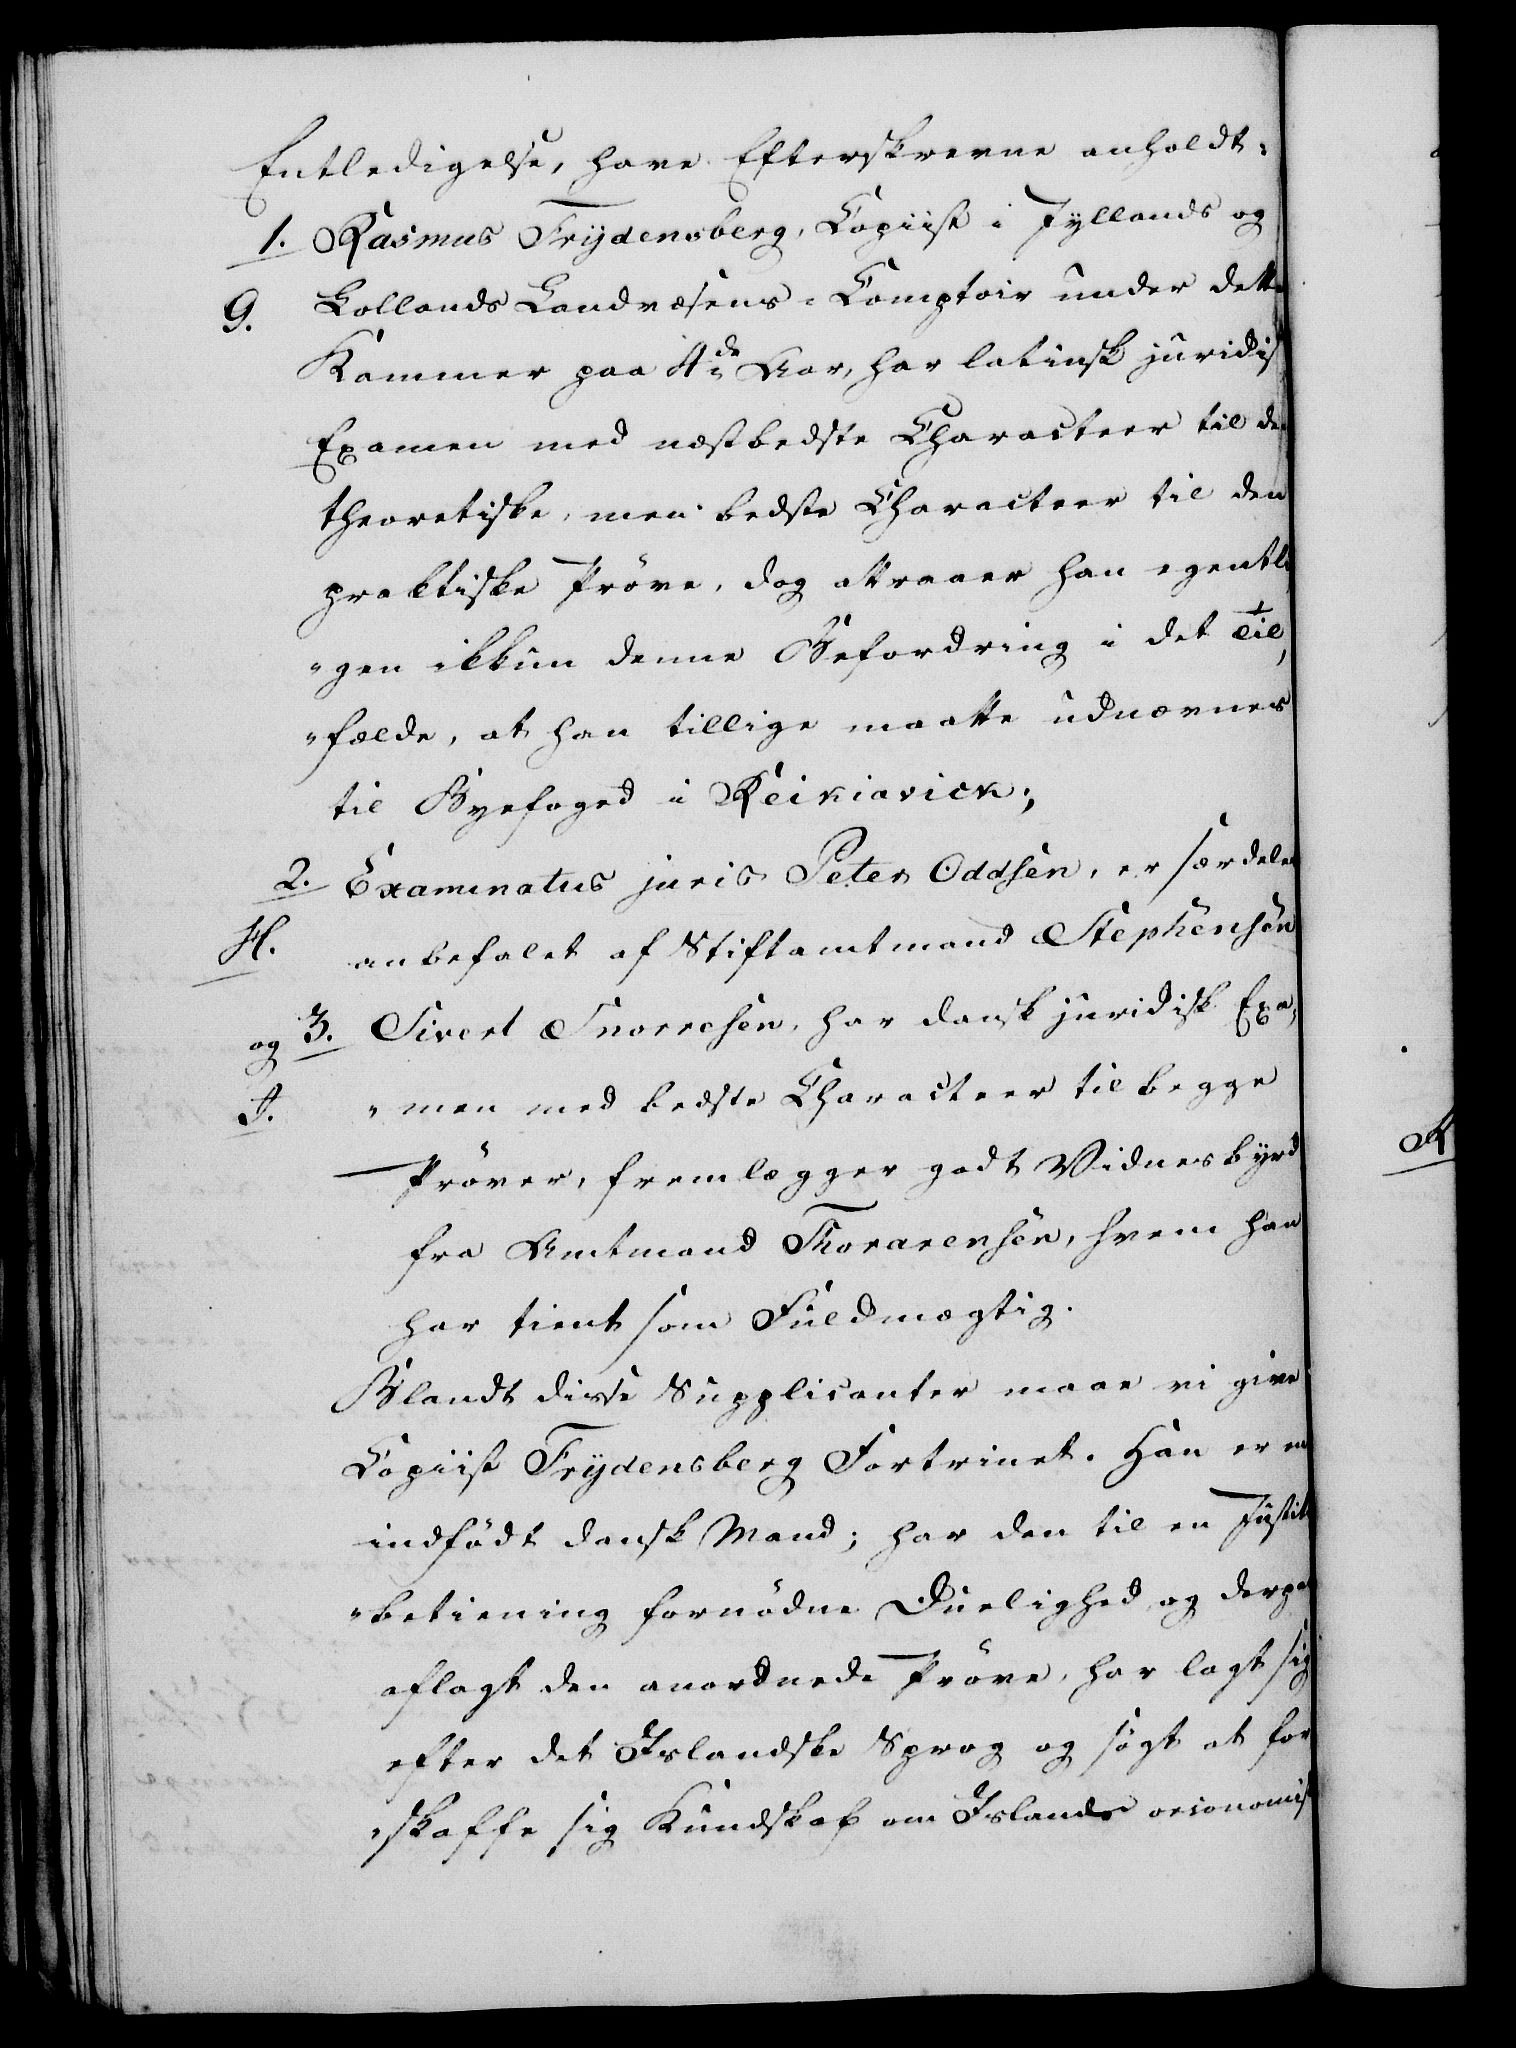 Entledigelse, have Efterskrevne anholdt:
1. Rasmus Frydensberg, Copiist i Jyllands og
G. Lollands Landvæsens-Comptoir under dette
Kammer paa 4de Aar, har latinsk juridisk
Examen med næstbedste Characteer til den
theoretiske, men bedste Characteer til den
praktiske Prøve, dog attraaer han egentli-
"gen ikkun denne Befordring i det Til-
"fælde, at han tillige maatte udnævnes
til Byefoged i Reikiavick;
2. Examinatus juris Peter Oddsen, er særdeles
H. anbefalet af Stiftamtmand Stephensen
og 3. Sivert Snorresen, har dansk juridisk Exa-
I. "men med bedste Characteer til begge
Prøver, fremlægger godt Vidnesbyrd
fra Amtmand Thorarensen, hvem han
har tient som Fuldmægtig.
Blandt disse Supplicanter maae vi give
Copiist Frydensberg Fortrinet. Han er en
indfødt dansk Mand; har den til en Justits
"betiening fornødne Duelighed og derpaa
aflagt den anordnede Prøve, har lagt sig
efter det Islandske Sprog og søgt at for
"skaffe sig Kundskab om Islands oeconomisk
R